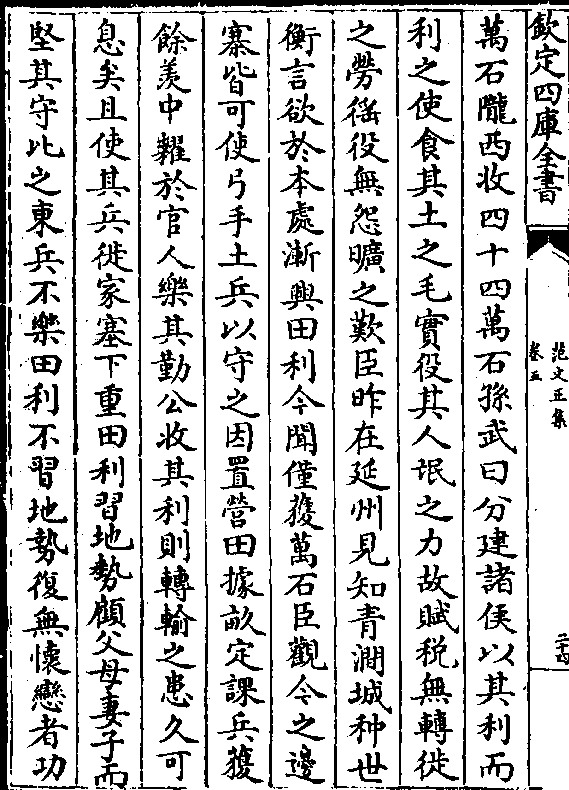 欽定四庫全書
范文正集
卷五
二十四
萬石隴西收四十四萬石孫武曰分建諸侯以其利而
利之使食其土之毛實役其人氓之力故賦税無轉徙
之勞徭役無怨曠之歎臣昨在延州見知青澗城种世
衡言欲於本處漸興田利今聞僅獲萬石臣觀今之邊
寨皆可使弓手土兵以守之因置營田據畝定課兵獲
餘羡中糴於官人樂其勤公收其利則轉輸之患久可
息矣且使其兵徙家塞下重田利習地勢顧父母妻子而
堅其守比之東兵不樂田利不習地勢復無懷戀者功